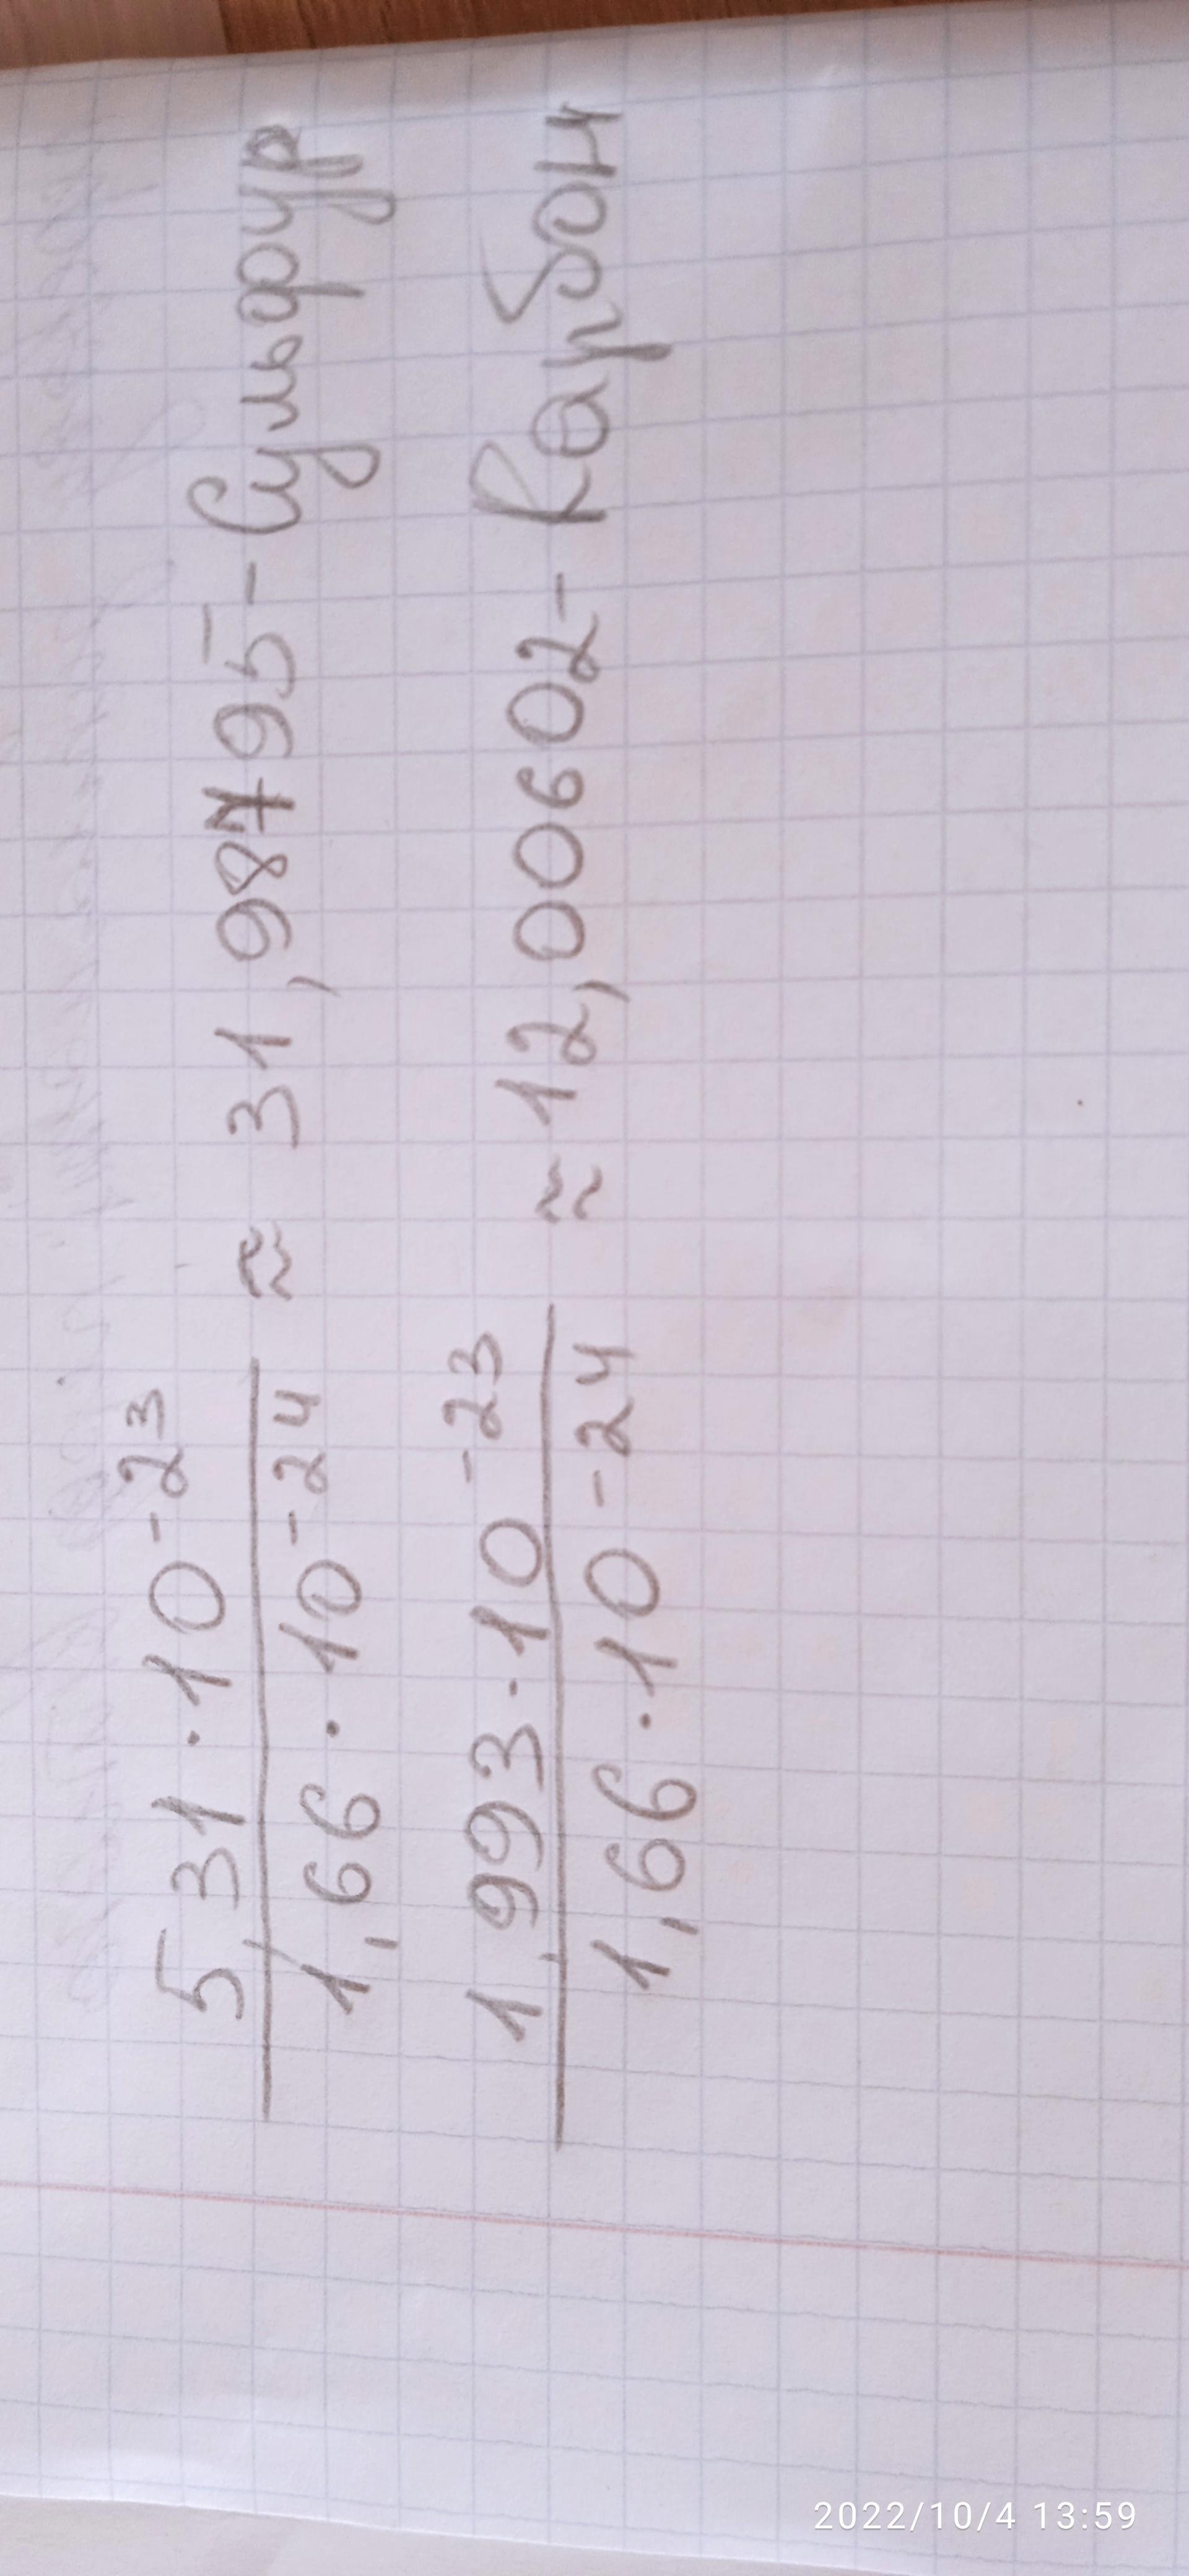 5,31 · 10⁻²³
1,66 · 10⁻²⁴ ≈ 31,987795 - Сульфур
1,993 · 10⁻²³
1,66 · 10⁻²⁴ ≈ 12,00602 - Карбон
2022/10/4 13:59